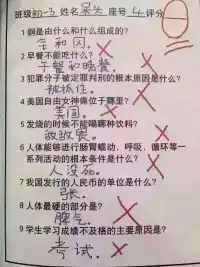 班级初一3 姓名呆头 座号4 评分0
1 钢是由什么和什么组成的?
全和冈。
2 早餐不能吃什么?
午餐和晚餐。
3 犯罪分子被定罪判刑的根本原因是什么?
被抓住。
4 美国自由女神像位于哪里?
美国。
5 发烧的时候不能喝哪种饮料?
敌敌畏。
6 人体能够进行肠胃蠕动,呼吸,循环等一
系列活动的根本条件是什么?
人没死。
7 我国发行的人民币的单位是什么?
张。
8 人体最硬的部分是?
脾气。
9 学生学习成绩不及格的主要原因是?
考试。